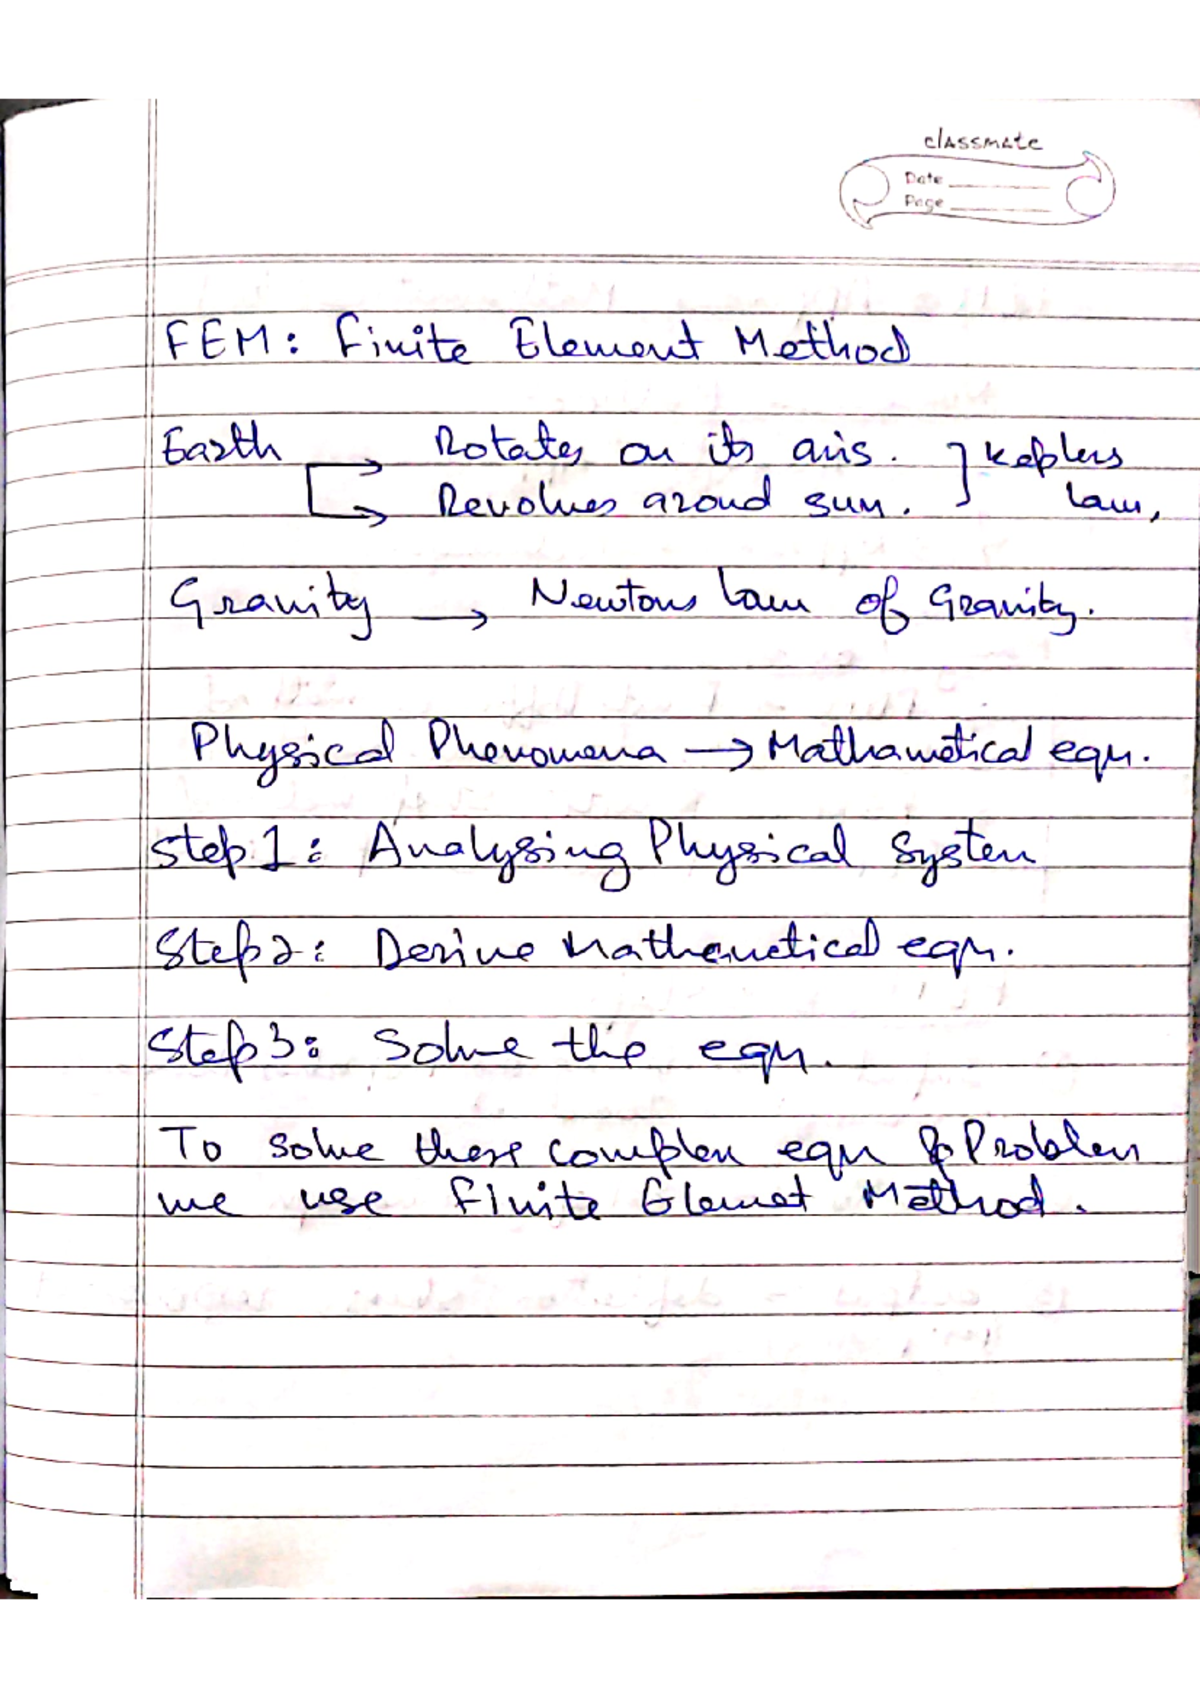 classmate
Date
Page
FEM: Finite Element Method
Earth → Rotates on its axis. ] Keplers
→ Revolves aroud sun. law,
Gravity → Newtons law of Gravity.
Physical Phenomena → Mathametical eqn.
Step 1: Analysing Physical System
Step 2: Derive Mathemetical eqn.
Step 3: Solve this eqn.
To solve these complex eqn & Problem
we use Finite Elemet Method.